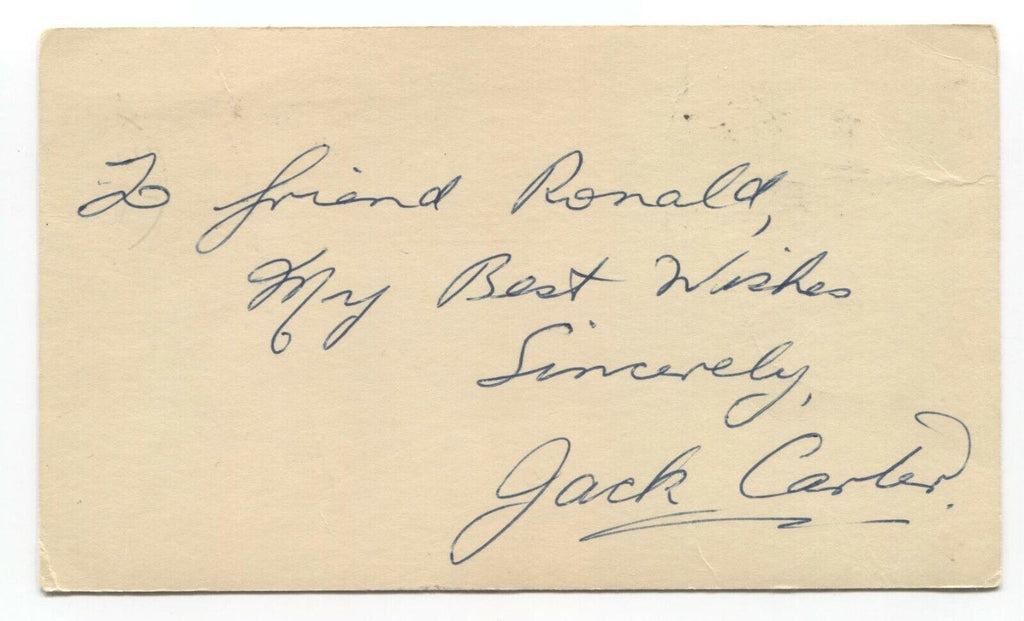 To friend Ronald,
My Best Wishes
Sincerely,
Jack Carter.